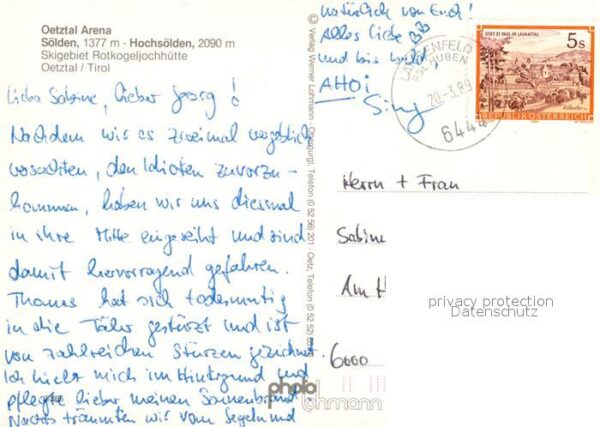 Oetztal Arena
Sölden, 1377 m - Hochsölden, 2090 m
Skigebiet Rotkogeljochhütte
Oetztal / Tirol
Liebe Sabine, lieber Georg!
Nachdem wir es zweimal vergeblich
versuchten, den Idioten zuvorzu-
kommen, haben wir uns diesmal
in ihre Mitte eingereiht und sind
damit hervorragend gefahren.
Thomas hat sich todesmutig
in die Täler gestürzt und ist
von zahlreichen Stürzen gezeichnet.
Ich hielt mich im Hintergrund und
pflegte lieber meinen Sonnenbrand.
Nachts träumten wir vom Segeln und
natürlich von Euch!
Alles Liebe
und bis bald,
AHOI
© Verlag Werner Lohmann, Obergurgl, Telefon (0 52 56) 201 - Oetz, Telefon (0 52 52)
LÄNGENFELD
HUBEN
20.-3.89
6444
STIFT ST. PAUL IM LAVANTTAL
5s
REPUBLIK ÖSTERREICH
Herrn + Frau
Sabine
Am H
6000
privacy protection
Datenschutz
photo
lohmann